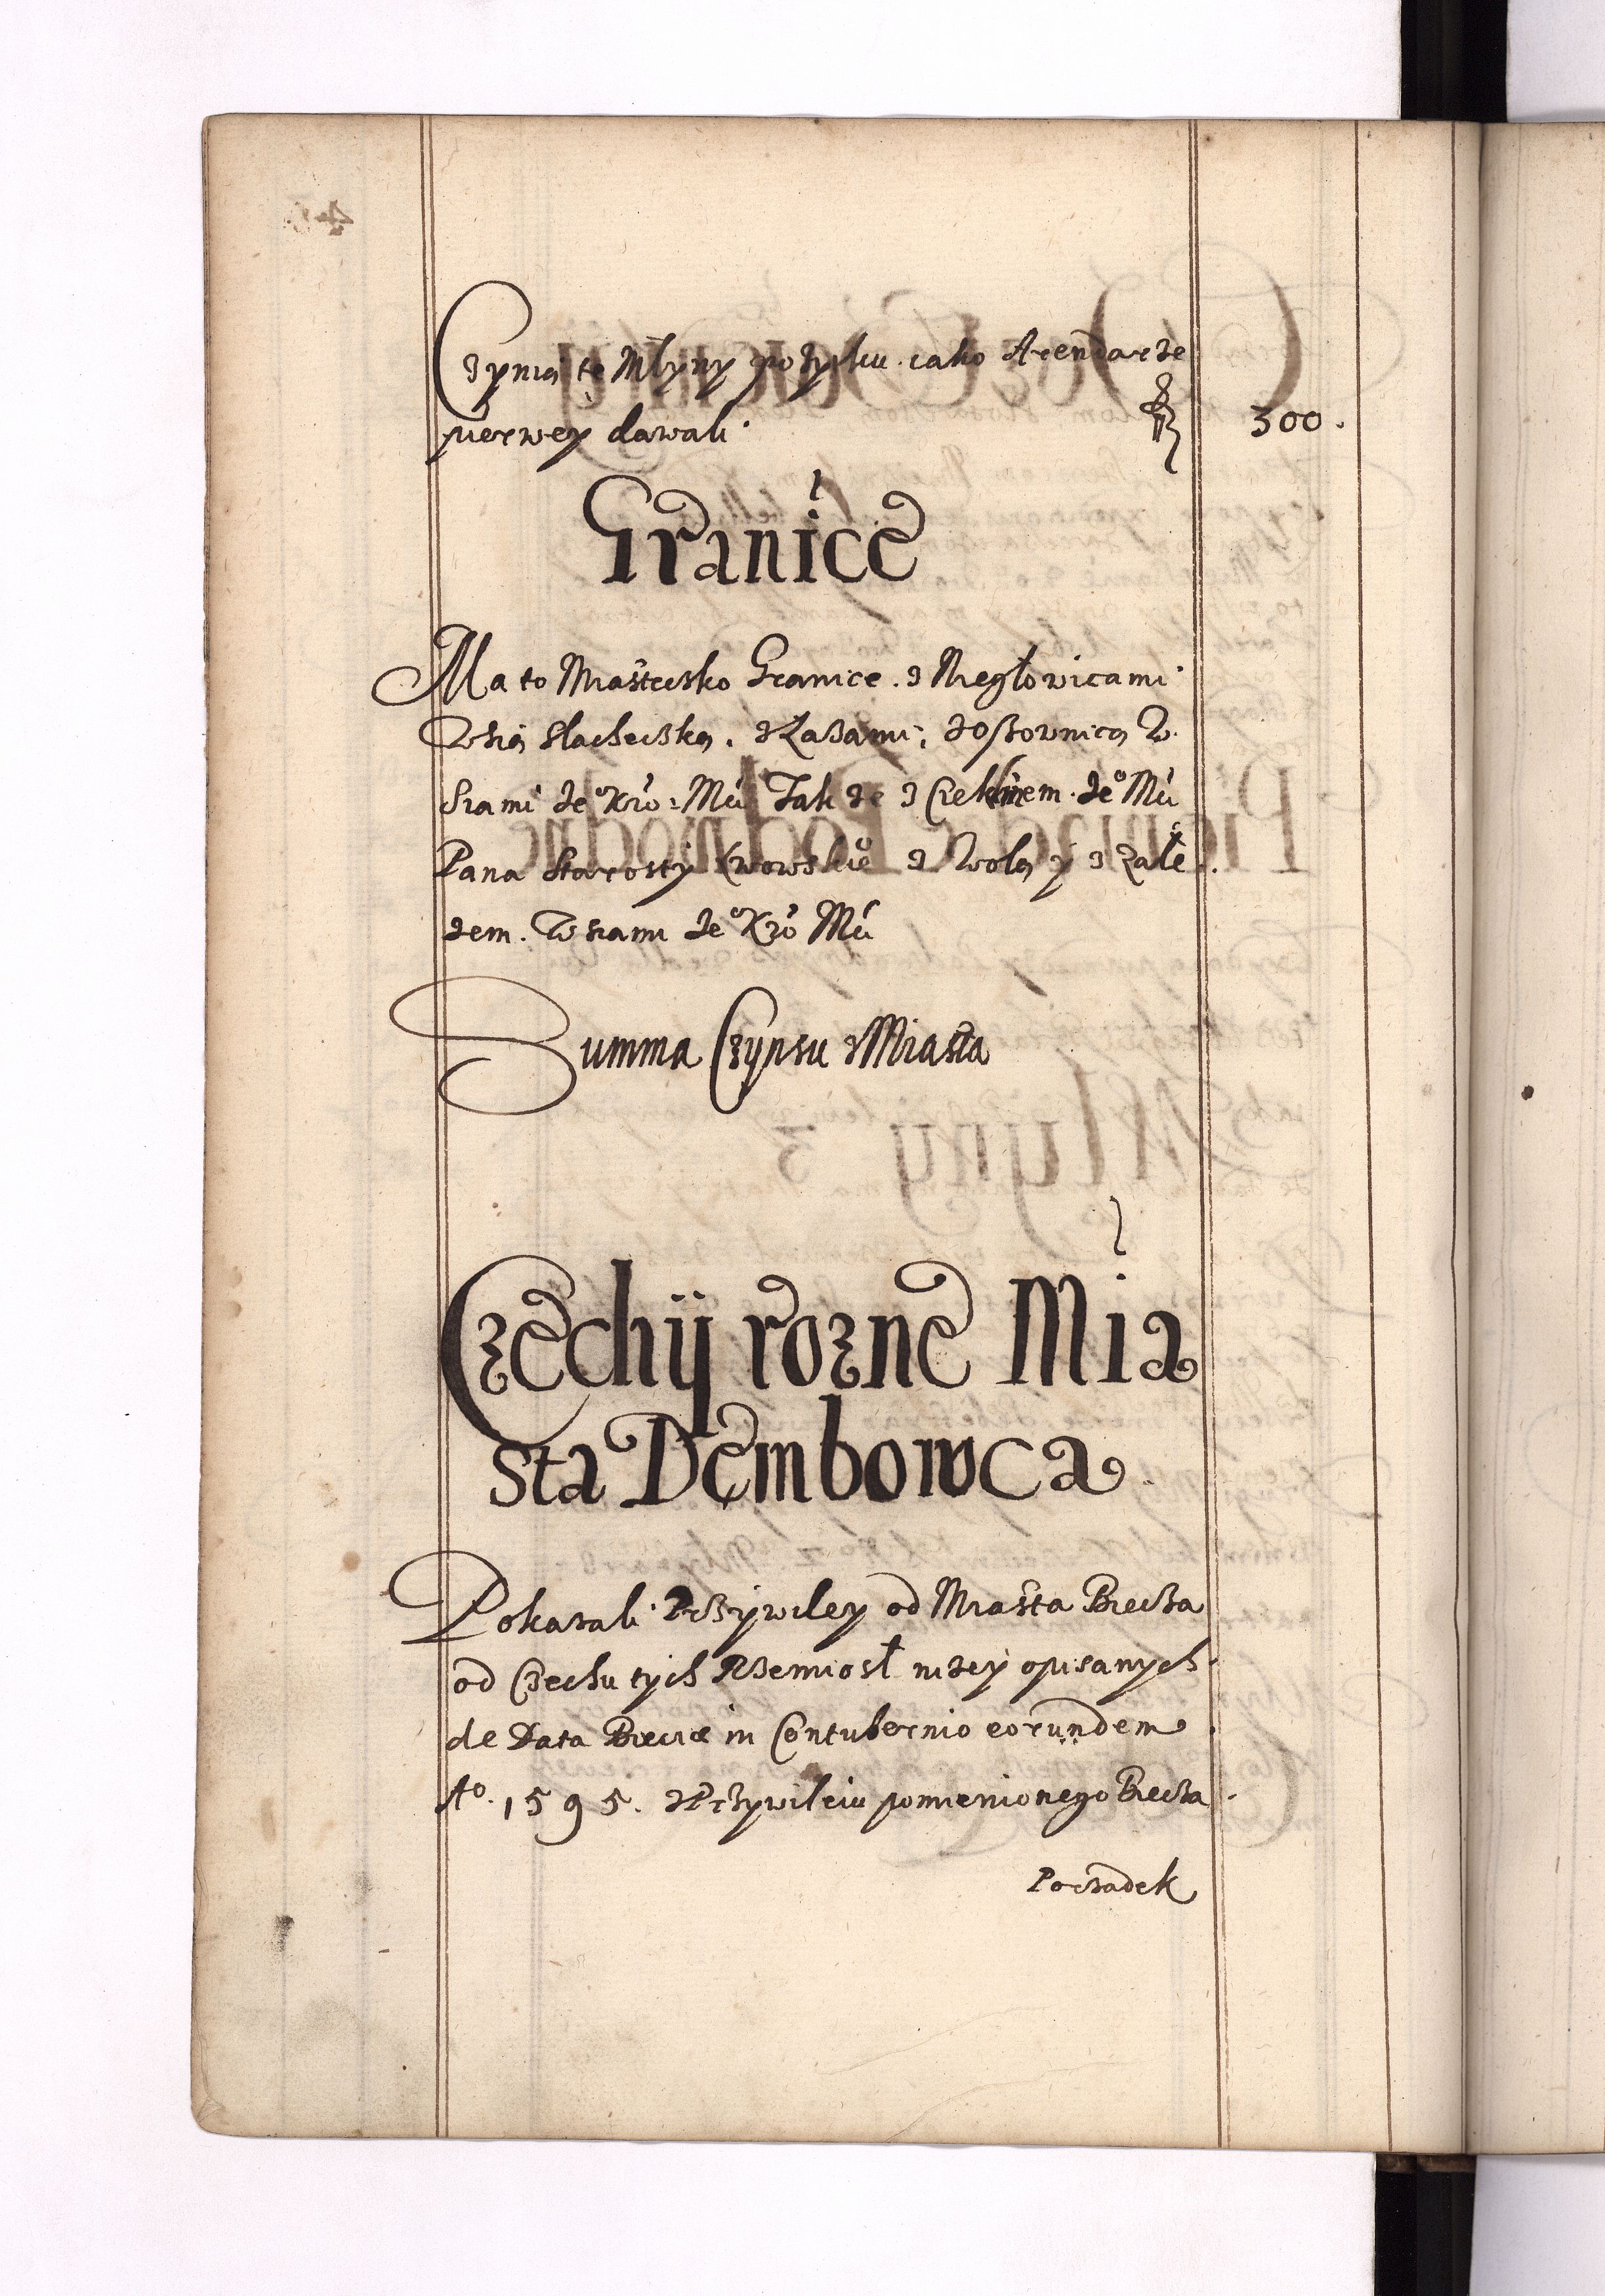 Czynią te Młyny pożytku iako Arendarze
pierwey dawali. fl 300.
Granice
Ma to Miastecsko Granice. z Niegłowicami
Wsią Slachecską. z Łaszami, z Osownicą W
siami Je° Kro: Mci Tak ze z Cieklinem. Je° Mci
Pana Starosty Lwowskie° z Wolą y z Załę
zem. Wsiami Je° Kro Mci
Summa Czynsu z Miasta
Czechÿ rozne Mia
sta Dembowca
Pokazali Przywiley od Miasta Biecza
od Czechu tych Rzemiosł nizey opisanych
de Data Bieciæ in Contubernio eorundem
A°. 1595. z Przywileiu pomienionego Biecza
Poczadek